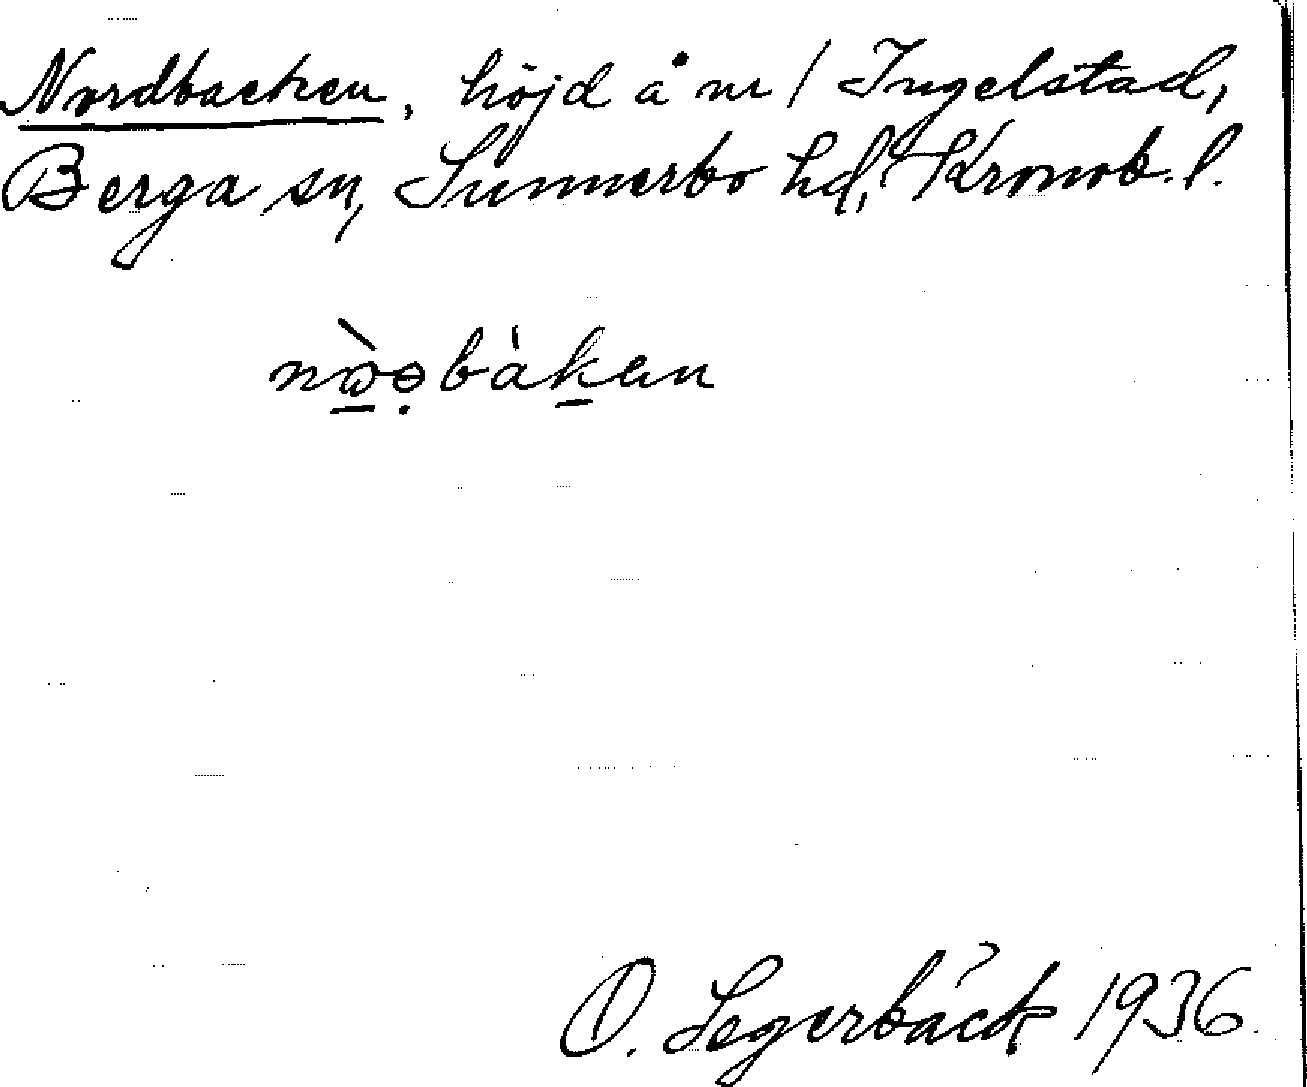 Nordbacken, höjd å nr 1 Ingelstad,
Berga sn, Sunnerbo hd, Kronob. l.
O. Segerbäck 1936.